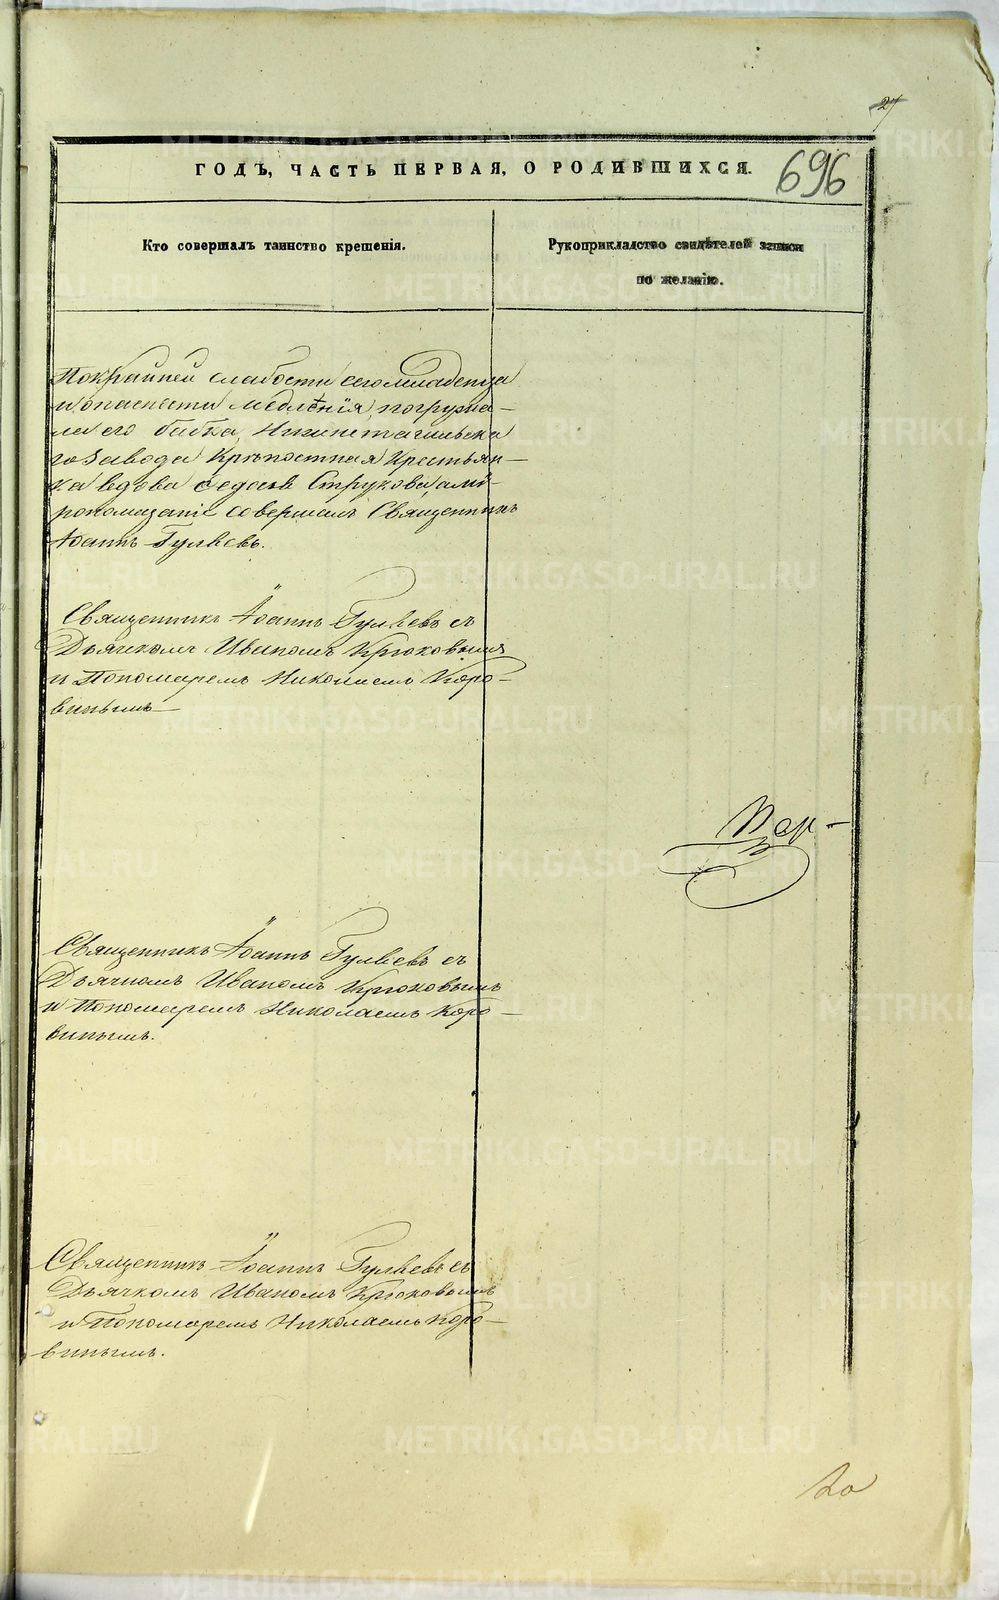 27
ГОДЪ, ЧАСТЬ ПЕРВАЯ, О РОДИВШИХСЯ.
696
Кто совершалъ таинство крещенія.
Рукоприкладство свидѣтелей записи
по желанію.
Покрайней слабости сего младенца
и опасности медленія, погружа-
ла его бабка, Нижнетагильска
го Завода Крѣпостная Крестьян-
ка вдова Ѳедосья Струкова, а мѵ-
ропомазаніе совершалъ Священникъ
Іоаннъ Гуляевъ.
Священникъ Іоаннъ Гуляевъ съ
Дьячкомъ Иваномъ Крюковымъ
и Пономаремъ Николаемъ Коро-
винымъ
Кор-
Священникъ Іоаннъ Гуляевъ съ
Дьячкомъ Иваномъ Крюковымъ
и Пономаремъ Николаемъ Коро-
винымъ.
Священникъ Іоаннъ Гуляевъ съ
Дьячкомъ Иваномъ Крюковымъ
и Пономаремъ Николаемъ Коро-
винымъ.
METRIKI.GASO-URAL.RU